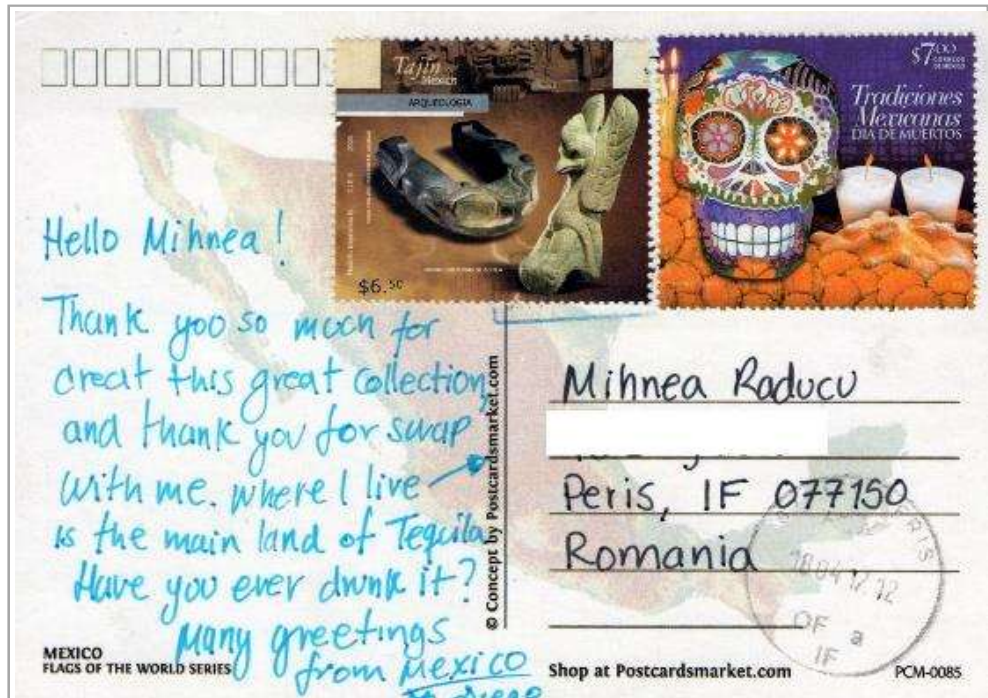 Tajín
MEXICO
ARQUEOLOGIA
$6.50
$7.00
CORREOS
DE MÉXICO
Tradiciones
Mexicanas
DIA DE MUERTOS
Hello Mihnea!
Thank you so much for
creat this great collection,
and thank you for swap
with me. where I live
is the main land of Tequila
Have you ever drunk it?
Many greetings
from Mexico
© Concept by Postcardsmarket.com
Mihnea Raducu
Peris, IF 077150
Romania
PERIS
18 04 12 12
OF a
IF
MEXICO
FLAGS OF THE WORLD SERIES
Shop at Postcardsmarket.com
PCM-0085